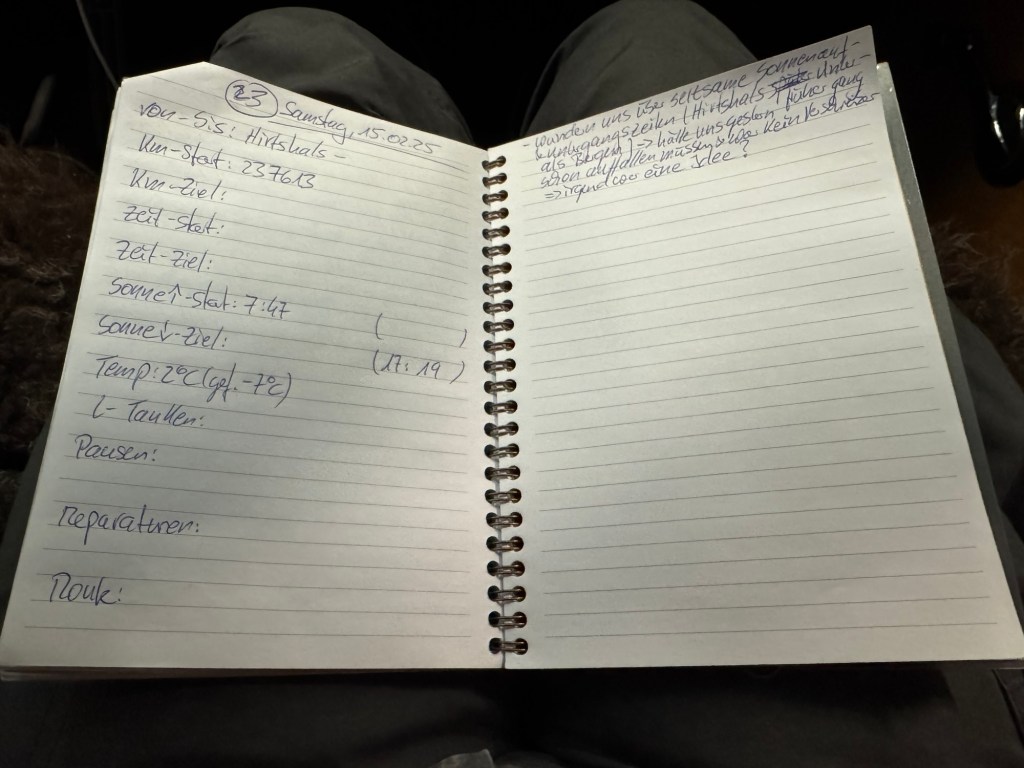 23 Samstag, 15.02.25
von-bis: Hirtshals -
Km-Start: 237613
Km-Ziel:
Zeit-Start:
Zeit-Ziel:
Sonne↑-Start: 7:47 ( )
Sonne↓-Ziel: (17:19)
Temp: 2°C (gef. -7°C)
L-Tanken:
Pausen:
Reparaturen:
Route:
- wundern uns über seltsame Sonnenauf-
& Untergangszeiten (Hirtshals früher Unter-
als Bergen) → hätte uns gestern früher gang
schon auffallen müssen & war kein Verschreiber
⇒ irgendwer eine Idee?